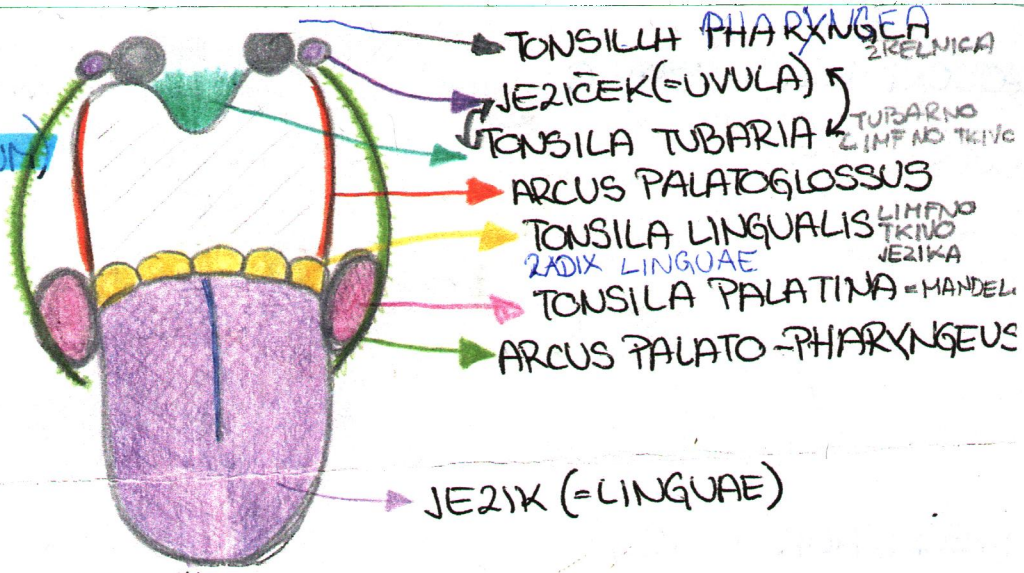 TONSILLA PHARYNGEA
ŽRELNICA
JEZIČEK (=UVULA)
TONSILA TUBARIA
TUBARNO
LIMFNO TKIVO
ARCUS PALATOGLOSSUS
TONSILA LINGUALIS
LIMFNO
TKIVO
JEZIKA
RADIX LINGUAE
TONSILA PALATINA = MANDEL
ARCUS PALATO-PHARYNGEUS
JEZIK (=LINGUAE)